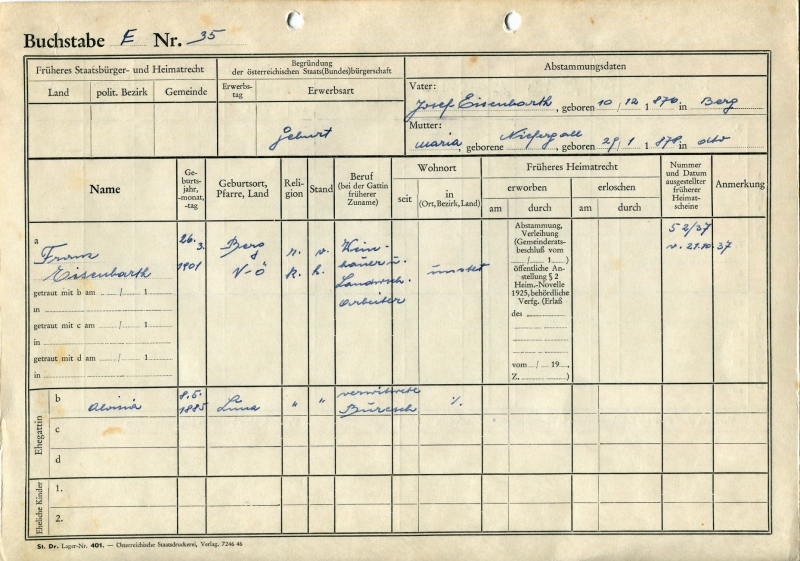 Buchstabe E Nr. 35
Früheres Staatsbürger- und Heimatrecht
Land polit. Bezirk Gemeinde
Begründung
der österreichischen Staats(Bundes)bürgerschaft
Erwerbs-
tag
Erwerbsart
Geburt
Abstammungsdaten
Vater:
Josef Eisenbarth, geboren 10/12 1870 in Berg
Mutter:
Maria, geborene Niefergall, geboren 29/1 1878, in dto
Name
Ge-
burts-
jahr,
-monat,
-tag
Geburtsort,
Pfarre, Land
Reli-
gion
Stand
Beruf
(bei der Gattin
früherer
Zuname)
Wohnort
seit
in
(Ort, Bezirk, Land)
Früheres Heimatrecht
erworben
am durch
erloschen
am durch
Nummer
und Datum
ausgestellter
früherer
Heimat-
scheine
Anmerkung
a
Franz
Eisenbarth
26.
3.
1901
Berg
N-Ö
r.
k.
v.
h.
Wein-
hauer u.
Landwsch.
arbeiter
unstet
Abstammung,
Verleihung
(Gemeinderats-
beschluß vom
/ 1 )
öffentliche An-
stellung § 2
Heim.-Novelle
1925, behördliche
Verfg. (Erlaß
des
vom / 19 ,
Z. )
52/37
v. 21.10.37
getraut mit b am / 1
in
getraut mit c am / 1
in
getraut mit d am / 1
in
Ehegattin
b Aloisia 8.5. 1885 " " verwitwete
Buresch ./.
c
d
Eheliche Kinder
1.
2.
St. Dr. Lager-Nr. 401. — Österreichische Staatsdruckerei, Verlag. 7246 46